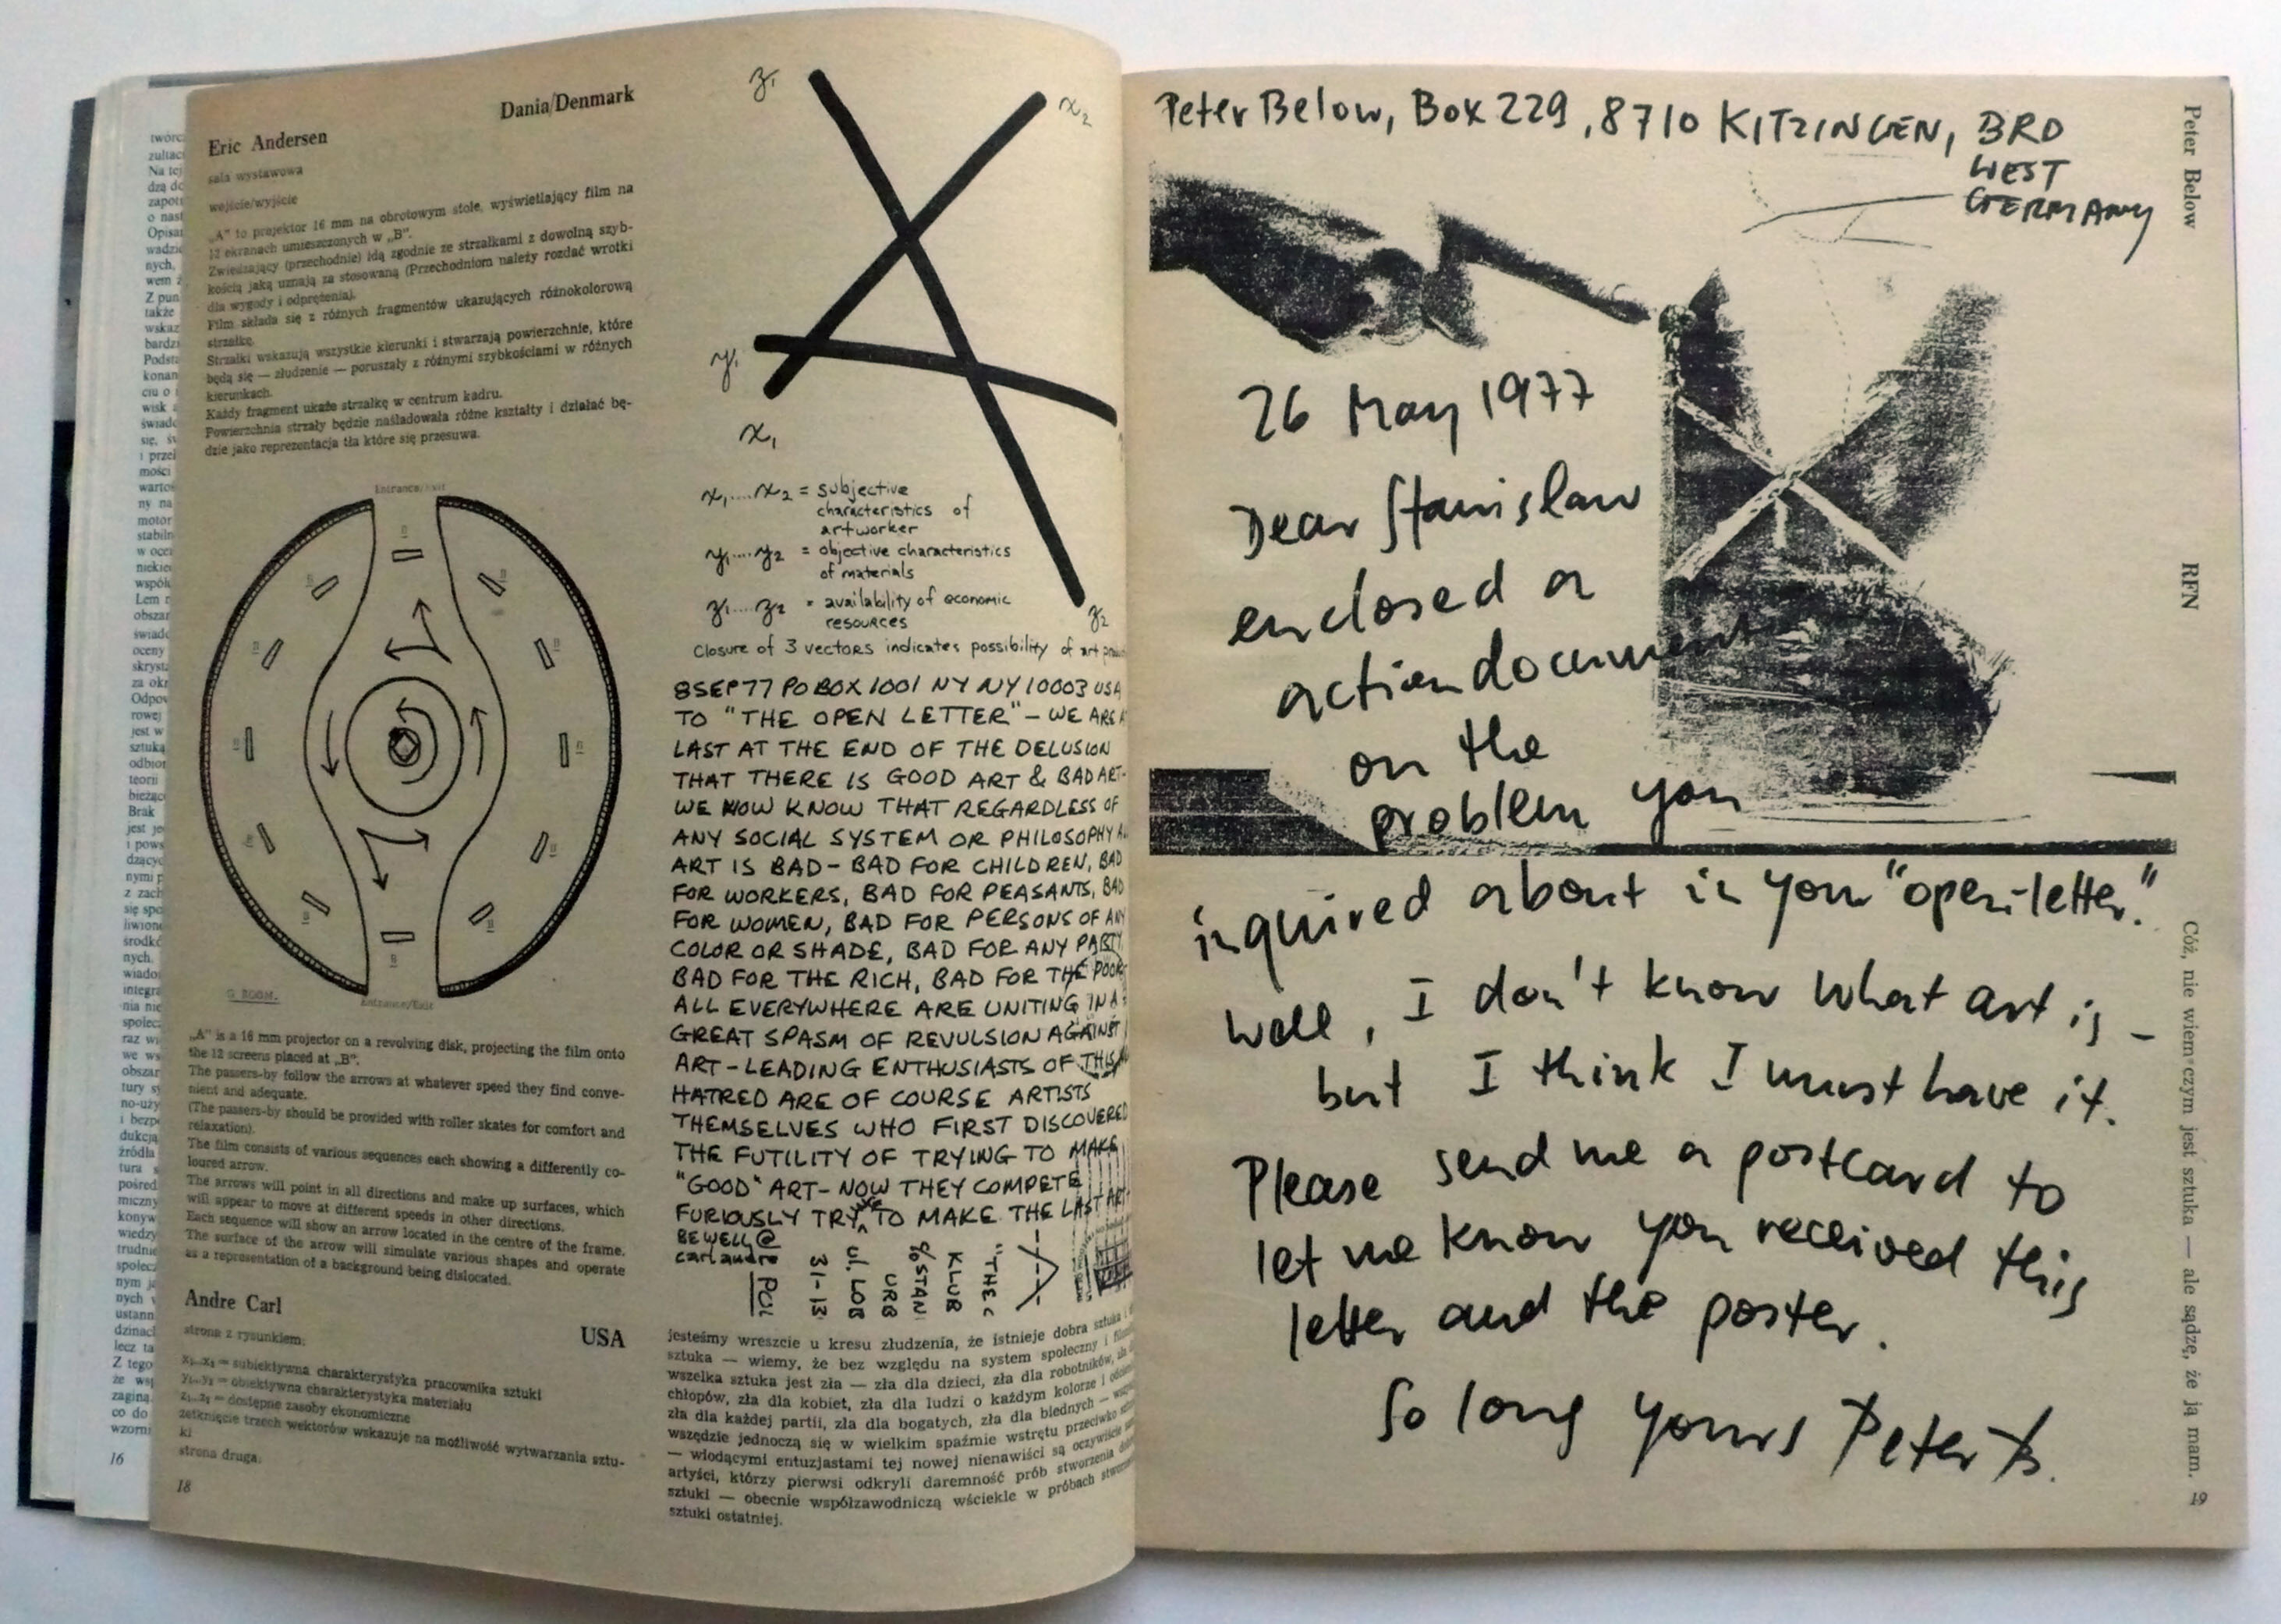 Dania/Denmark
Eric Andersen
sala wystawowa
wejście/wyjście
„A" to projektor 16 mm na obrotowym stole, wyświetlający film na
12 ekranach umieszczonych w „B".
Zwiedzający (przechodnie) idą zgodnie ze strzałkami z dowolną szyb-
kością jaką uznają za stosowaną (Przechodniom należy rozdać wrotki
dla wygody i odprężenia).
Film składa się z różnych fragmentów ukazujących różnokolorową
strzałkę.
Strzałki wskazują wszystkie kierunki i stwarzają powierzchnie, które
będą się — złudzenie — poruszały z różnymi szybkościami w różnych
kierunkach.
Każdy fragment ukaże strzałkę w centrum kadru.
Powierzchnia strzały będzie naśladowała różne kształty i działać bę-
dzie jako reprezentacja tła które się przesuwa.
Entrance/Exit
G ROOM.
Entrance/Exit
„A" is a 16 mm projector on a revolving disk, projecting the film onto
the 12 screens placed at „B".
The passers-by follow the arrows at whatever speed they find conve-
nient and adequate.
(The passers-by should be provided with roller skates for comfort and
relaxation).
The film consists of various sequences each showing a differently co-
loured arrow.
The arrows will point in all directions and make up surfaces, which
will appear to move at different speeds in other directions.
Each sequence will show an arrow located in the centre of the frame.
The surface of the arrow will simulate various shapes and operate
as a representation of a background being dislocated.
Andre Carl
USA
strona z rysunkiem:
x₁...x₂ = subiektywna charakterystyka pracownika sztuki
y₁...y₂ = obiektywna charakterystyka materiału
z₁...z₂ = dostępne zasoby ekonomiczne
zetknięcie trzech wektorów wskazuje na możliwość wytwarzania sztu-
ki
strona druga:
18
z₁
x₂
y₁
x₁
z₂
x₁....x₂ = subjective
characteristics of
artworker
y₁....y₂ = objective characteristics
of materials
z₁....z₂ = availability of economic
resources
Closure of 3 vectors indicates possibility of art
8SEP77 PO BOX 1001 NY NY 10003 USA
TO "THE OPEN LETTER" – WE ARE
LAST AT THE END OF THE DELUSION
THAT THERE IS GOOD ART & BAD ART-
WE NOW KNOW THAT REGARDLESS OF
ANY SOCIAL SYSTEM OR PHILOSOPHY
ART IS BAD – BAD FOR CHILDREN, BAD
FOR WORKERS, BAD FOR PEASANTS, BAD
FOR WOMEN, BAD FOR PERSONS OF ANY
COLOR OR SHADE, BAD FOR ANY PARTY
BAD FOR THE RICH, BAD FOR THE POOR
ALL EVERYWHERE ARE UNITING IN A
GREAT SPASM OF REVULSION AGAINST
ART – LEADING ENTHUSIASTS OF THIS
HATRED ARE OF COURSE ARTISTS
THEMSELVES WHO FIRST DISCOVERED
THE FUTILITY OF TRYING TO MAKE
"GOOD" ART – NOW THEY COMPETE
FURIOUSLY TRY TO MAKE THE LAST ART
BE WELL @
carl andre
"THE C
KLUB
% STAN
URB
ul. LOB
31-13
POL
jesteśmy wreszcie u kresu złudzenia, że istnieje dobra sztuka i
sztuka — wiemy, że bez względu na system społeczny i
wszelka sztuka jest zła — zła dla dzieci, zła dla robotników, zła
chłopów, zła dla kobiet, zła dla ludzi o każdym kolorze i
zła dla każdej partii, zła dla bogatych, zła dla biednych —
wszędzie jednoczą się w wielkim spaźmie wstrętu przeciwko
— wiodącymi entuzjastami tej nowej nienawiści są oczywiście
artyści, którzy pierwsi odkryli daremność prób stworzenia
sztuki — obecnie współzawodniczą wściekle w próbach
sztuki ostatniej.
16
Peter Below, Box 229, 8710 KITZINGEN, BRD
WEST
GERMANY
26 May 1977
Dear Stanislaw
enclosed a
actiondocument
on the
problem you
inquired about in your "open-letter."
Well, I don't know what art is –
but I think I must have it.
Please send me a postcard to
let me know you received this
letter and the poster.
So long yours Peter B.
Peter Below
RFN
Cóż, nie wiem czym jest sztuka — ale sądzę, że ją mam.
19